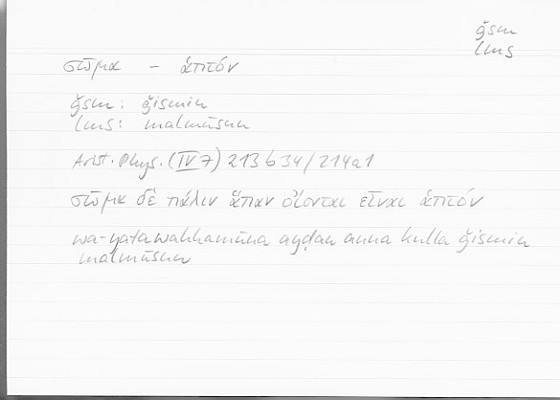 ǧsm
lms
σῶμα – ἁπτόν
ǧsm : ǧismin
lms : malmūsun
Arist. Phys. (IV 7) 213 b 34 / 214 a 1
σῶμα δὲ πάλιν ἅπαν οἴονται εἶναι ἁπτόν
wa-yatawahhamūna ayḍan anna kulla ǧismin
malmūsun